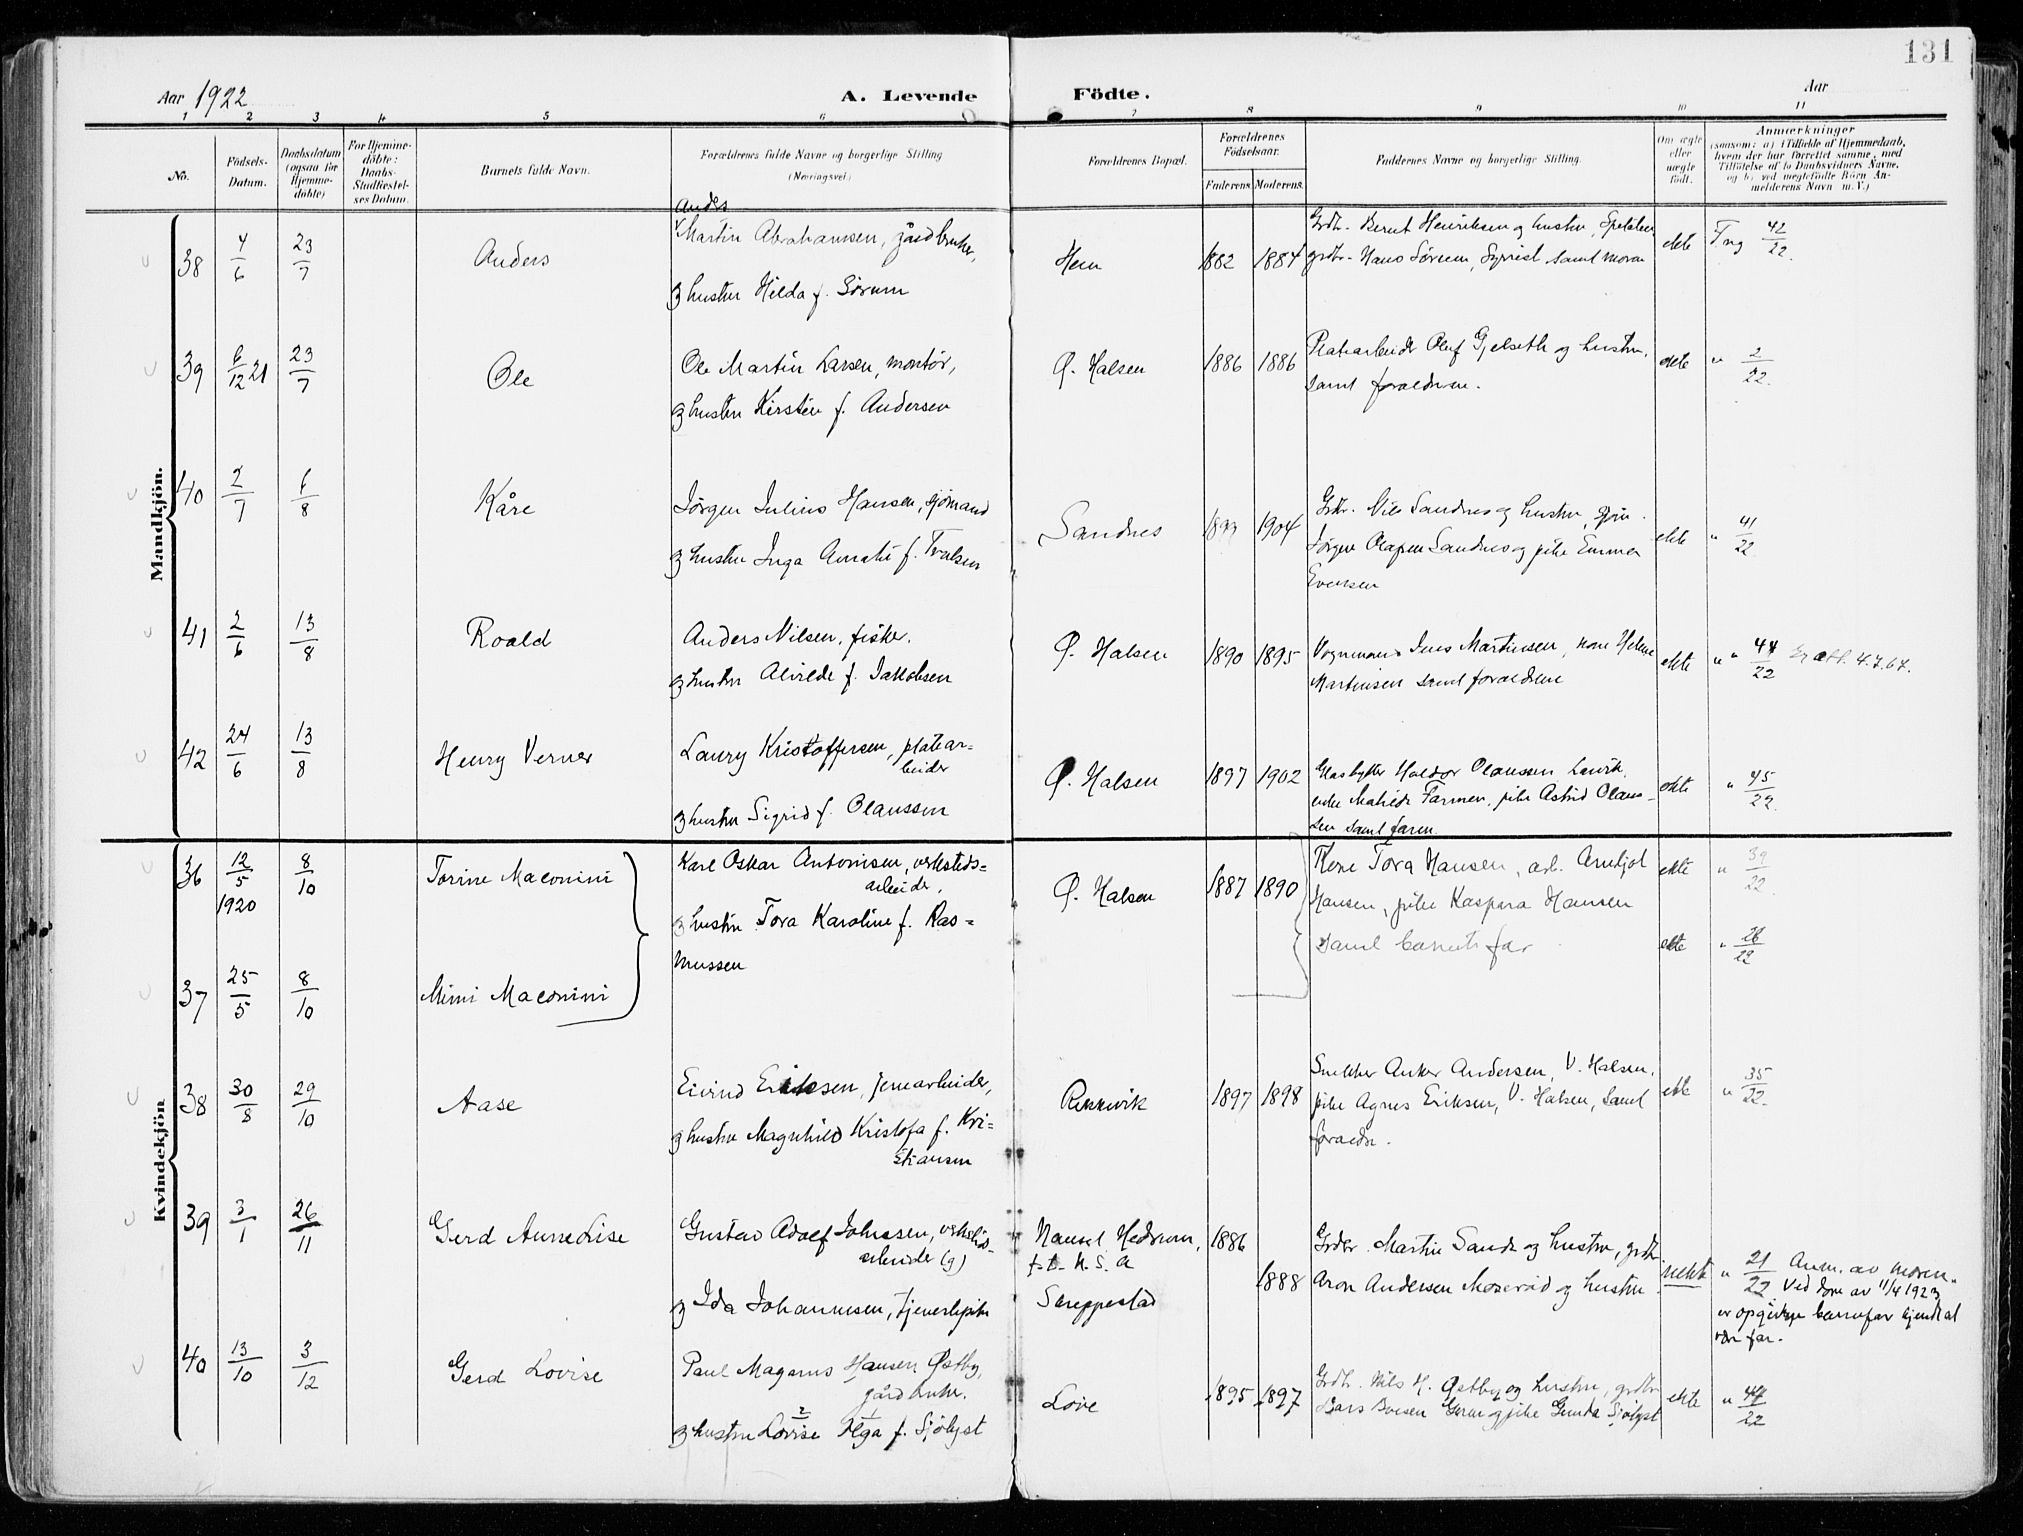 131
Aar 1922
A. Levende
Födte.
Aar
1 2 3 4 5 6 7 8 9 10 11
No.
Födsels-
Datum.
Daabsdatum
(ogsaa for
Hjemme-
döbte)
For Hjemme-
döbte:
Daabs-
Stadfæstel-
ses Datum.
Barnets fulde Navn.
Forældrenes fulde Navne og borgerlige Stilling
(Næringsvei.)
Forældrenes Bopæl.
Forældrenes
Födselsaar.
Faderens. Moderens.
Faddernes Navne og borgerlige Stilling.
Om ægte
eller
uægte
födt.
Anmærkninger
(saasom: a) i Tilfælde af Hjemmedaab,
hvem der har forrettet samme, med
Tilföielse af to Daabsvidners Navne,
og b) ved uægtefödte Börn An-
melderens Navn m. V.)
Mandkjön.
38 4/6 23/7 Anders
Anders
Martin Abrahamsen, gårdbruker,
g hustru Hilda f. Sørum
Hem 1882 1884
Grdbr. Bernt Henriksen og hustru,
grdbr. Hans Sørum, samt moren
ekte Tng 42/22.
39 6/12 21 23/7 Ole
Ole Martin Larsen, montør,
g hustru Kirsten f. Andersen
Ø. Halsen 1886 1886
Platearbeider Oluf Gjelseth og hustru,
samt forældrene.
ekte " 2/22.
40 2/7 6/8 Kåre
Jørgen Julius Hansen, sjømand
g hustru Inga f.
Sandnes 1904
Grbr. Nils Sandnes og hustru,
Jørgen Sandnes og pike Emma
Evensen
ekte " 41/22
41 2/6 13/8 Roald
Anders Nilsen, fisker.
g hustru Alvilde f. Jakobsen
Ø. Halsen 1890 1895
Vognmand Jens Martinsen, kone Helene
Martinsen samt forældrene
ekte " " 44/22 att. 4.7.67.
42 24/6 13/8 Henry Verner
Laury Kristoffersen, platear-
beider
g hustru Sigrid f. Olaussen
Ø. Halsen 1897 1902
Haldor Olaussen Larvik,
enke Mathilde Farmen, pike Astrid Olaus-
sen samt faren
ekte " 45/22
Kvindekjön
36 12/5 1920 8/10 Torine Maconini
Karl Oskar Antonisen, verksteds-
arbeider,
g hustru Tora Karoline f. Ras-
mussen
Ø. Halsen 1887 1890
Tora Hansen, arb. Arnljot
Hansen, pike Kaspara Hansen
samt barnets far
ekte " 39/22.
ekte " 26/22
37 25/5 8/10 Mimi Maconini
38 30/8 29/10 Aase
Eivind Eriksen, jernarbeider,
g hustru Magnhild Kristofa f. Kri-
stiansen
Rekkevik 1897 1898
Snekker Anker Andersen, V. Halsen,
pike Agnes Eriksen, V. Halsen, samt
forældr.
ekte " 35/22.
39 3/1 26/11 Gerd Anne Lise
Gustav Adolf Johnsen, verksteds-
arbeider (g)
g Ida Johannesen, tjenestepike
Nanset Hedrum,
f.t. U.S.A
Skreppestad
1886
1888
Grdbr. Martin Sande og hustru, grdbr
Aron Andersen Moserød og hustru
uekte " 21/22 Anm. av moren.
Ved dom av 11/4 1923
er opgivne barnefar kjendt at
være far.
40 13/10 3/12 Gerd Lovise
Paul Magnus Hansen Østby,
gårdbruker.
g hustru Lovise Olga f. Sjølyst
Love 1895 1897
Grdbr. Nils H. Østby og hustru, grdbr
Lars og pike Gunda Sjølyst
ekte " 44/22